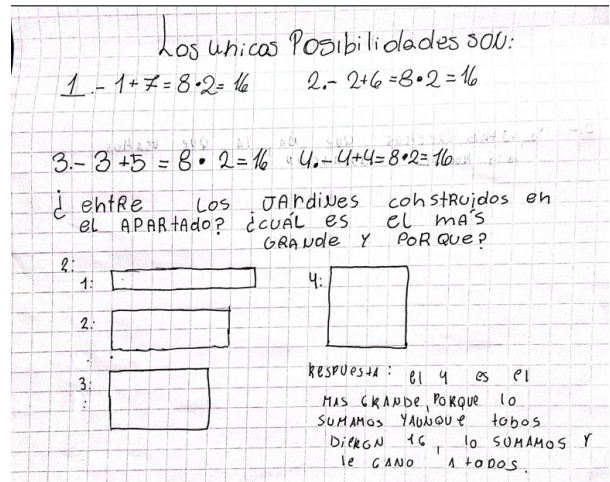 Los unicas Posibilidades SON:
1.- 1+7=8•2=16   2.- 2+6=8•2=16
3.- 3+5=8•2=16   4.- 4+4=8•2=16
¿ entRe Los JARdiNes conStRuidos en
el APARtAdo? ¿cuÁL es el mA's
GRANDe Y PoRQue?
2:
1:
2:
3:
:
4:
RespuestA: el 4 es el
MAS GRANDE, PoRQUe lo
SUMAMOS YAUNQUe tobos
DieRON 16, lo SUMAMOS Y
le GANO A toDOS.